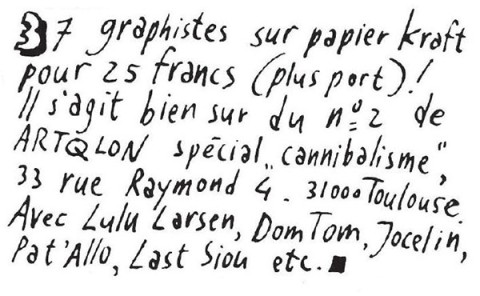 37 graphistes sur papier kraft
pour 25 francs (plus port)!
Il s'agit bien sur du nº2 de
ARTQLON spécial „cannibalisme",
33 rue Raymond 4 - 31000 Toulouse.
Avec Lulu Larsen, DomTom, Jocelin,
Pat'Allo, Last Siou etc. ■